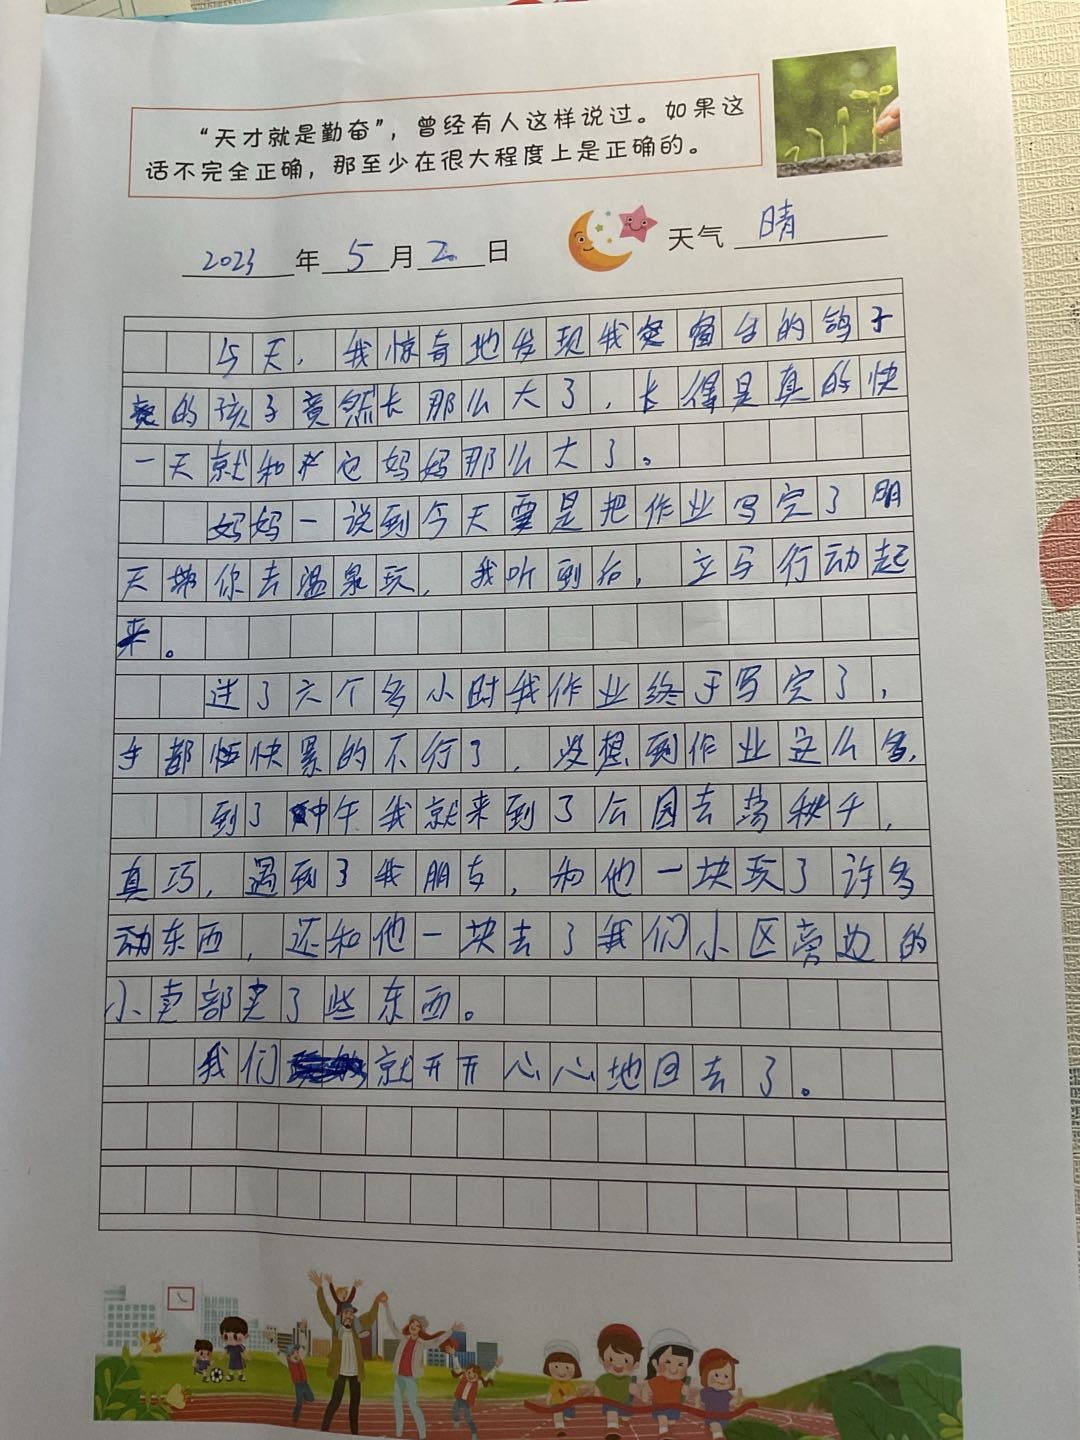 “天才就是勤奋”，曾经有人这样说过。如果这
话不完全正确，那至少在很大程度上是正确的。
2023年5月2日 天气 晴
今天，我惊奇地发现我家窗台的鸽子
的孩子竟然长那么大了，长得是真的快
一天就和它妈妈那么大了。
妈妈一说到今天要是把作业写完了明
天带你去温泉玩，我听到后，立马行动起
来。
过了六个多小时我作业终于写完了，
手都快累的不行了，没想到作业这么多，
到了中午我就来到了公园去荡秋千，
真巧，遇到了我朋友，和他一块玩了许多
东西，还和他一块去了我们小区旁边的
小卖部卖了些东西。
我们就开开心心地回去了。